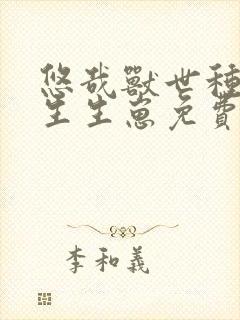 悠哉獸世種
生生崽免費
李和義